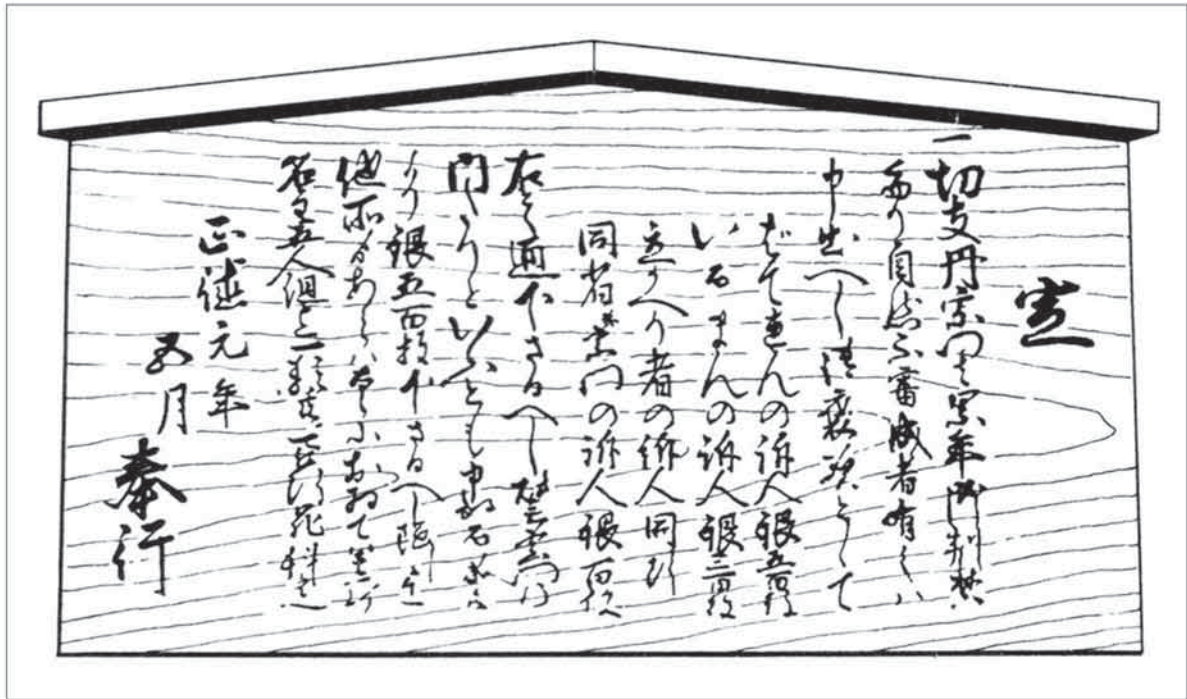 定
一切支丹宗門ハ累年御制禁
たり自然不審成者有之ハ
申出へし御褒美として
ばてれんの訴人銀五百枚
いるまんの訴人銀三百枚
立かへり者の訴人同断
同宿并宗門の訴人銀百枚
右之通下さるへし宗
門之内たりといふとも申出る品に
より銀五百枚下さるへし隠し置
他所よりあらはるゝにおゐてハ其所
名主五人組迄一類共ニ可被行罪科者也
正徳元年
五月
奉行